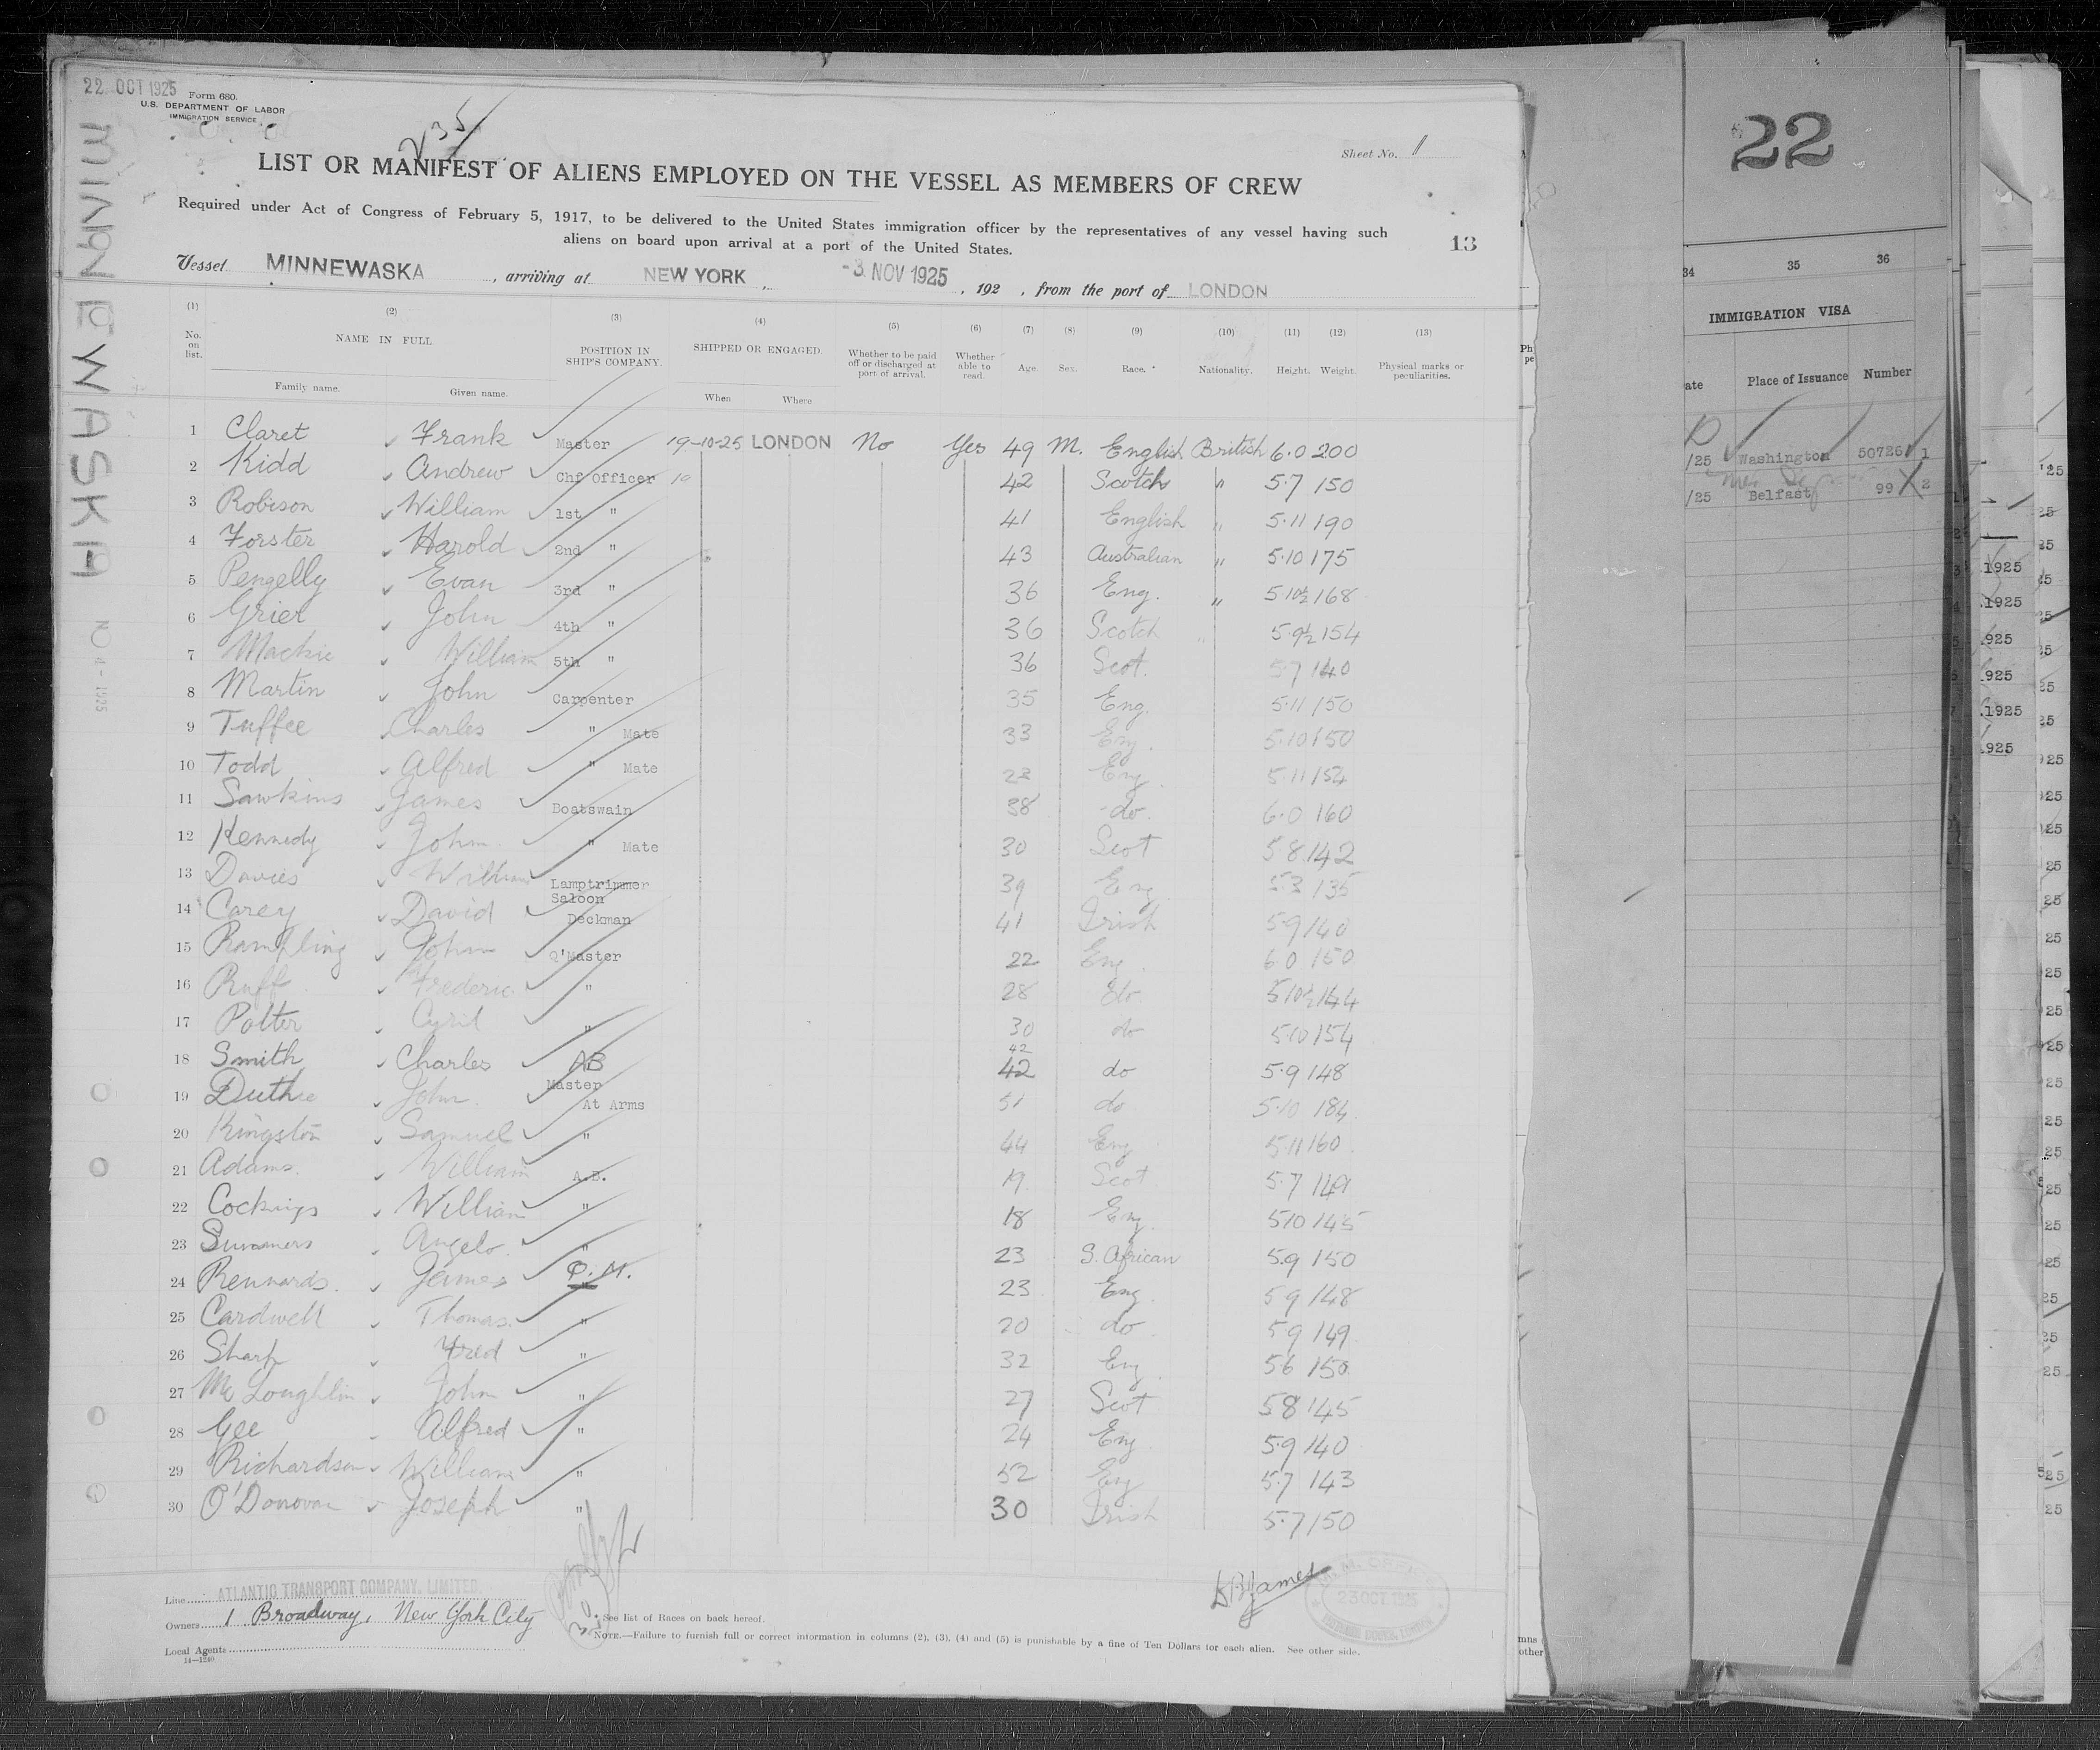 22 OCT 1925
Form 680.
U.S. DEPARTMENT OF LABOR
IMMIGRATION SERVICE
235
Sheet No. 1
LIST OR MANIFEST OF ALIENS EMPLOYED ON THE VESSEL AS MEMBERS OF CREW
Required under Act of Congress of February 5, 1917, to be delivered to the United States immigration officer by the representatives of any vessel having such
aliens on board upon arrival at a port of the United States.
13
Vessel MINNEWASKA, arriving at NEW YORK, -3 NOV 1925, 192 , from the port of LONDON
(1) (2) (3) (4) (5) (6) (7) (8) (9) (10) (11) (12) (13)
No. on list. NAME IN FULL POSITION IN SHIP'S COMPANY. SHIPPED OR ENGAGED. Whether to be paid off or discharged at port of arrival. Whether able to read. Age. Sex. Race.* Nationality. Height. Weight. Physical marks or peculiarities.
Family name. Given name. When Where
1 Claret Frank Master 19-10-25 LONDON No Yes 49 M. English British 6.0 200
2 Kidd Andrew Chf Officer 19 42 Scotch " 5.7 150
3 Robison William 1st " 41 English " 5.11 190
4 Forster Harold 2nd " 43 Australian " 5.10 175
5 Pengelly Evan 3rd " 36 Eng. " 5.10½ 168
6 Grier John 4th " 36 Scotch " 5.9½ 154
7 Mackie William 5th " 36 Scot. 5.7 140
8 Martin John Carpenter 35 Eng. 5.11 150
9 Tuffee Charles " Mate 33 Eng. 5.10 150
10 Todd Alfred " Mate 23 Eng. 5.11 154
11 Sawkins James Boatswain 38 do. 6.0 160
12 Kennedy John " Mate 30 Scot 5.8 142
13 Davies William Lamptrimmer 39 Eng 5.3 135
14 Carey David Saloon Deckman 41 Irish 5.9 140
15 Rampling John Q'Master 22 Eng. 6.0 150
16 Ruff Frederic " 28 do. 5.10½ 144
17 Potter Cyril " 30 do 5.10 154
42
18 Smith Charles AB 42 do 5.9 148
19 Duthie John Master At Arms 51 do 5.10 184
20 Kingston Samuel " 44 Eng 5.11 160
21 Adams William A.B. 19 Scot 5.7 149
22 Cockings William " 18 Eng. 5.10 145
23 Summers Angelo " 23 S. African 5.9 150
24 Rennards James Q.M. 23 Eng. 5.9 148
25 Cardwell Thomas " 20 do 5.9 149
26 Sharp Fred " 32 Eng 5.6 150
27 McLoughlin John " 27 Scot 5.8 145
28 Gee Alfred " 24 Eng 5.9 140
29 Richardson William " 52 Eng 5.7 143
30 O'Donovan Joseph " 30 Irish 5.7 150
Line ATLANTIC TRANSPORT COMPANY, LIMITED.
Owners 1 Broadway, New York City
Local Agents
14—1240
* See list of Races on back hereof.
NOTE.—Failure to furnish full or correct information in columns (2), (3), (4) and (5) is punishable by a fine of Ten Dollars for each alien. See other side.
James
23 OCT. 1925
MINNEWASKA
22
34 35 36
IMMIGRATION VISA
ate Place of Issuance Number
/25 Washington 50726 1
/25 Belfast 99 2